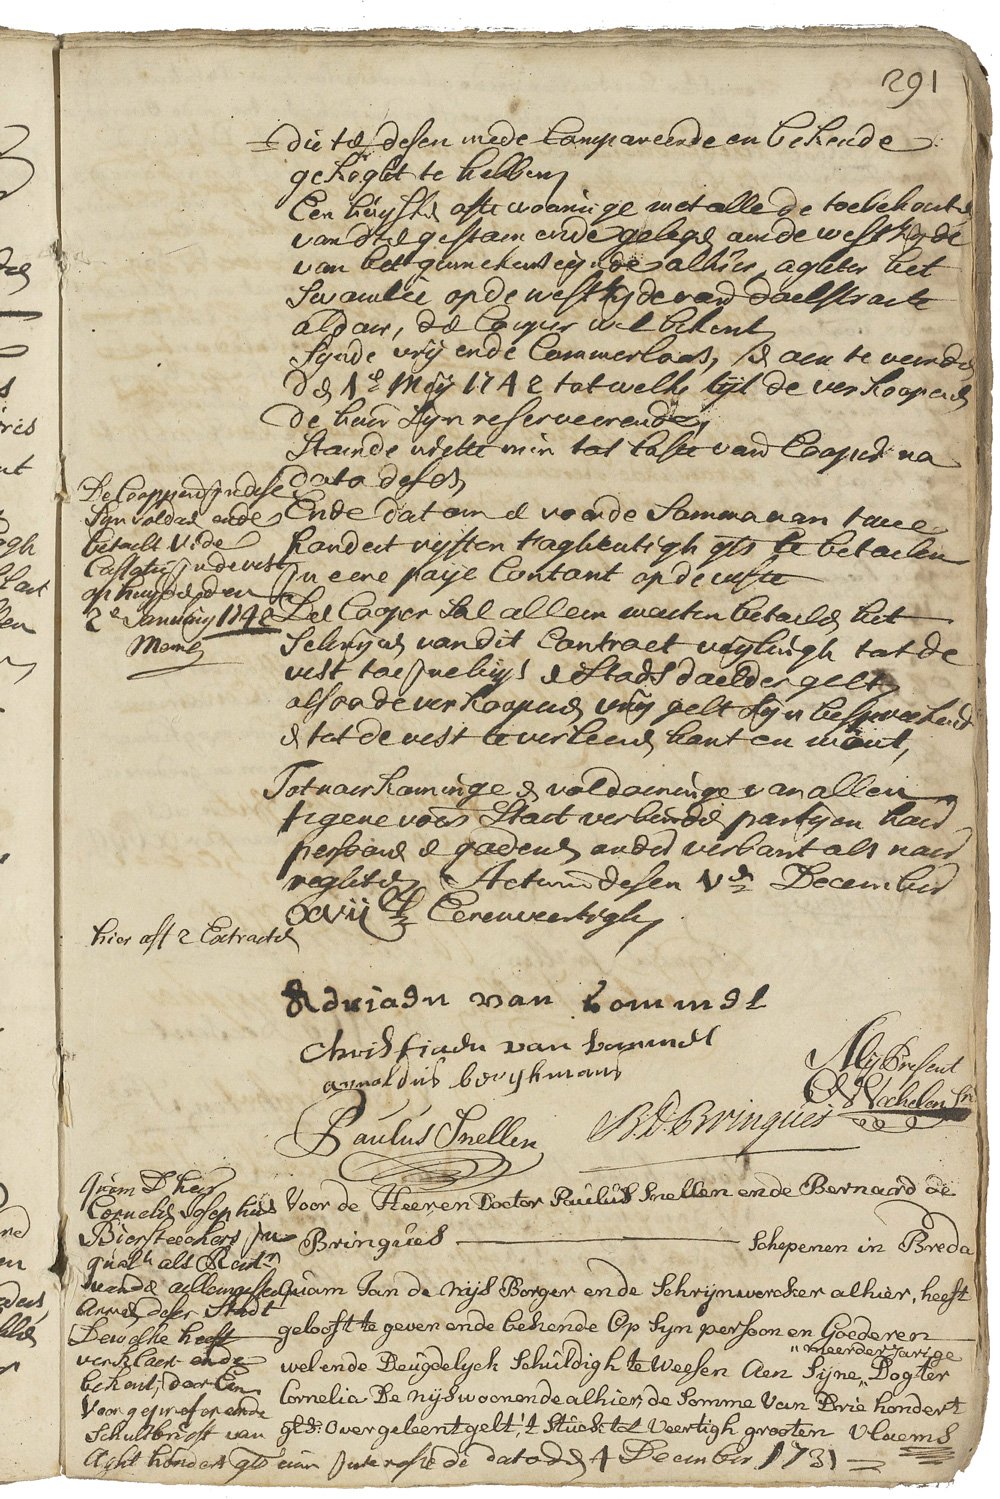 291
die te desen mede Compareerde en bekende
gekoght te hebben
Een huyske ofte wooninge met alle de toebehoorte
van dien gestaen ende gelegen aen de westzyde
van het ginnekens eynde alhier, aghter het
op de westzyde van daelstraete
aldaer, de Coper wel bekent
synde vrij ende Commerloos, en aen te veerden
den 1e Meij 1742 tot welke tijt de verkooperen
de huer syn reserveerende,
staende niette min tot laste van Cooper na
dato deses
Ende dat om de voorse Somma van twee
hondert vyff en taghentigh gls te betaelen
In eene paije Contant op de veste
Den Cooper Sal alleen moeten betaelen het
Schryven van dit Contract tot de
vest toe Inclüs de Stadsdaelder gelt
alsoo de verkooperen vrij gelt syn besprekende
en tot de vest te verleenen hant en mont,
Tot naer kominge en voldoeninge van allen
tgene voors Staet verbinden partyen haer
persoonen en goederen onder verbant als naer
reghten, Actum desen Ven December
XVIIC Eenenveertigh,
De Cooppenn In dese
syn voldaen ende
betaelt Vide
Cassatie In de vest
op huyden den
2e January 1742
hier aff 2 Extracten
Adriaen van Commel
Christiaen van bommel
arnoldus berghmans
Mij Present
Paulus Snellen
B. D. Bringues
Voor de Heeren Doctor Paulus Snellen ende Bernard de
Bringues — Schepenen in Breda
Quam Jan de Nijs Borger ende Schrynwercker alhier, heeft
gelooft te geven ende bekende Op Syn persoon en Goederen
wel ende Deugdelyck Schuldigh te Weesen Aen Syne „meerderjarige„ Dogter
Cornelia De Nijs woonende alhier, de Somme Van Drie hondert
gls: overgeleent gelt, 't stuck tot Veertigh grooten Vlaems
Quam D'heer
Cornelis Josephus
Biersteeckers In
quah als Rentmr
vande
Armen deser Stadt
Dewelke heeft
verklaert ende
bekent, dat Een
Voorgepasseerende
Schultbrieff van
Acht hondert gls aen In de dato den 4 December 1731